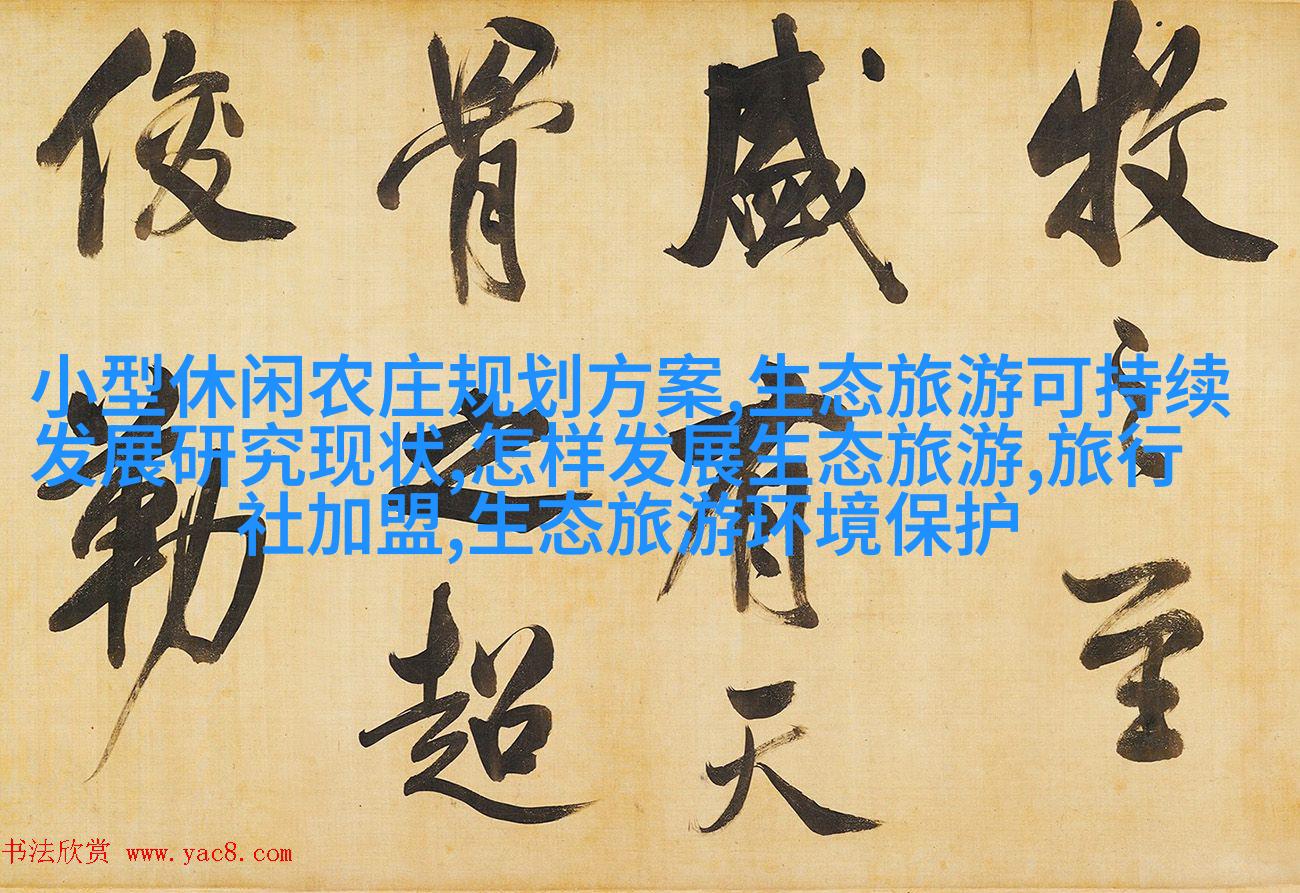 牧之至
盛有天
骨之超
俊勒
小型休闲农庄规划方案,生态旅游可持续
发展研究现状,怎样发展生态旅游,旅行
社加盟,生态旅游环境保护
书法欣赏 www.yac8.com